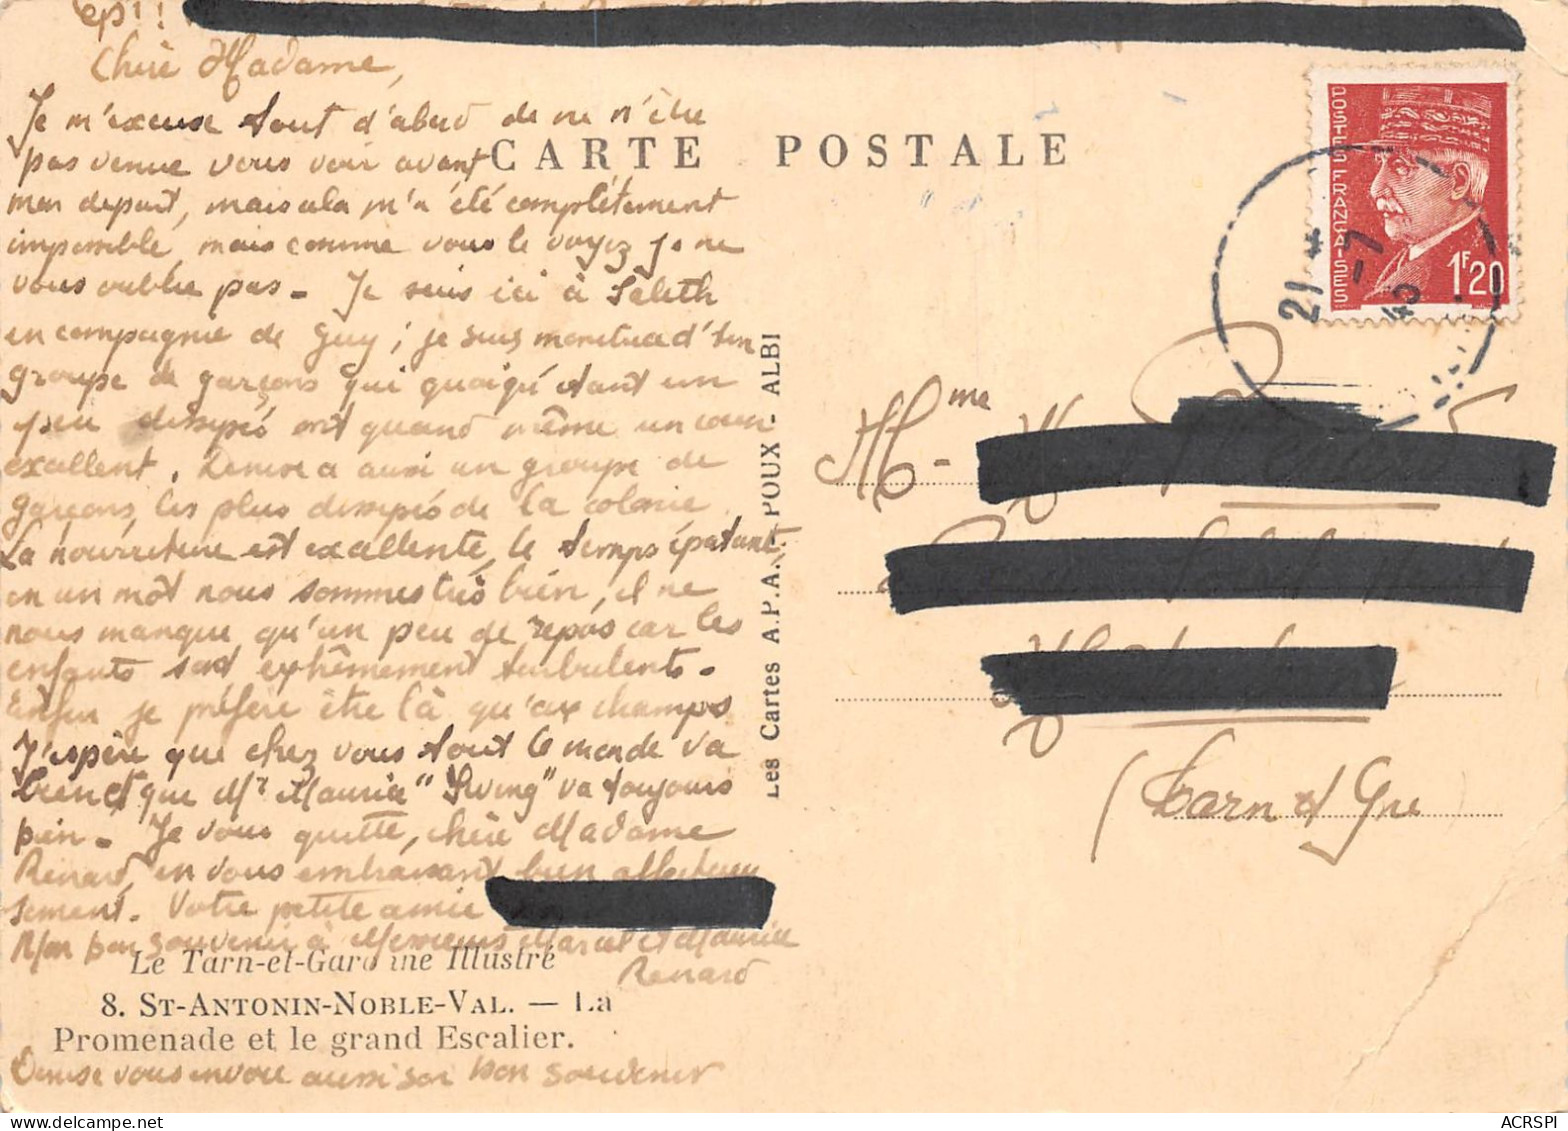 ep!!
Chère Madame,
Je m'excuse tout d'abord de ne m'être
pas venue vous voir avant
mon depart, mais cela m'a été complètement
impossible, mais comme vous le voyez je ne
vous oublie pas - Je suis ici à
en compagnie de Guy; je suis monitrice d'un
groupe de garçons qui quoiqu'étant un
peu dissipés ont quand même un cœur
excellent. Denise a aussi un groupe de
garçons, les plus dissipés de la colonie.
La nourriture est excellente, le temps épatant,
en un mot nous sommes très bien, il ne
nous manque qu'un peu de repos car les
enfants sont extrêmement turbulents -
Enfin je préfère être là qu'aux champs
J'espère que chez vous tout le monde va
bien et que Mr Maurice "Swing" va toujours
bien - Je vous quitte, chère Madame
Renard, en vous embrassant bien affectueu
sement. Votre petite amie
Mon bon souvenir à Messieurs Marcel et Maurice
Renard
Denise vous envoie aussi son bon souvenir
Le Tarn-et-Garonne Illustré
8. ST-ANTONIN-NOBLE-VAL. — La
Promenade et le grand Escalier.
Les Cartes A.P.A. POUX - ALBI
CARTE POSTALE
POSTES FRANÇAISES
1F20
21 * -7 43 *
Mme
(Tarn et Gne)
ACRSPI